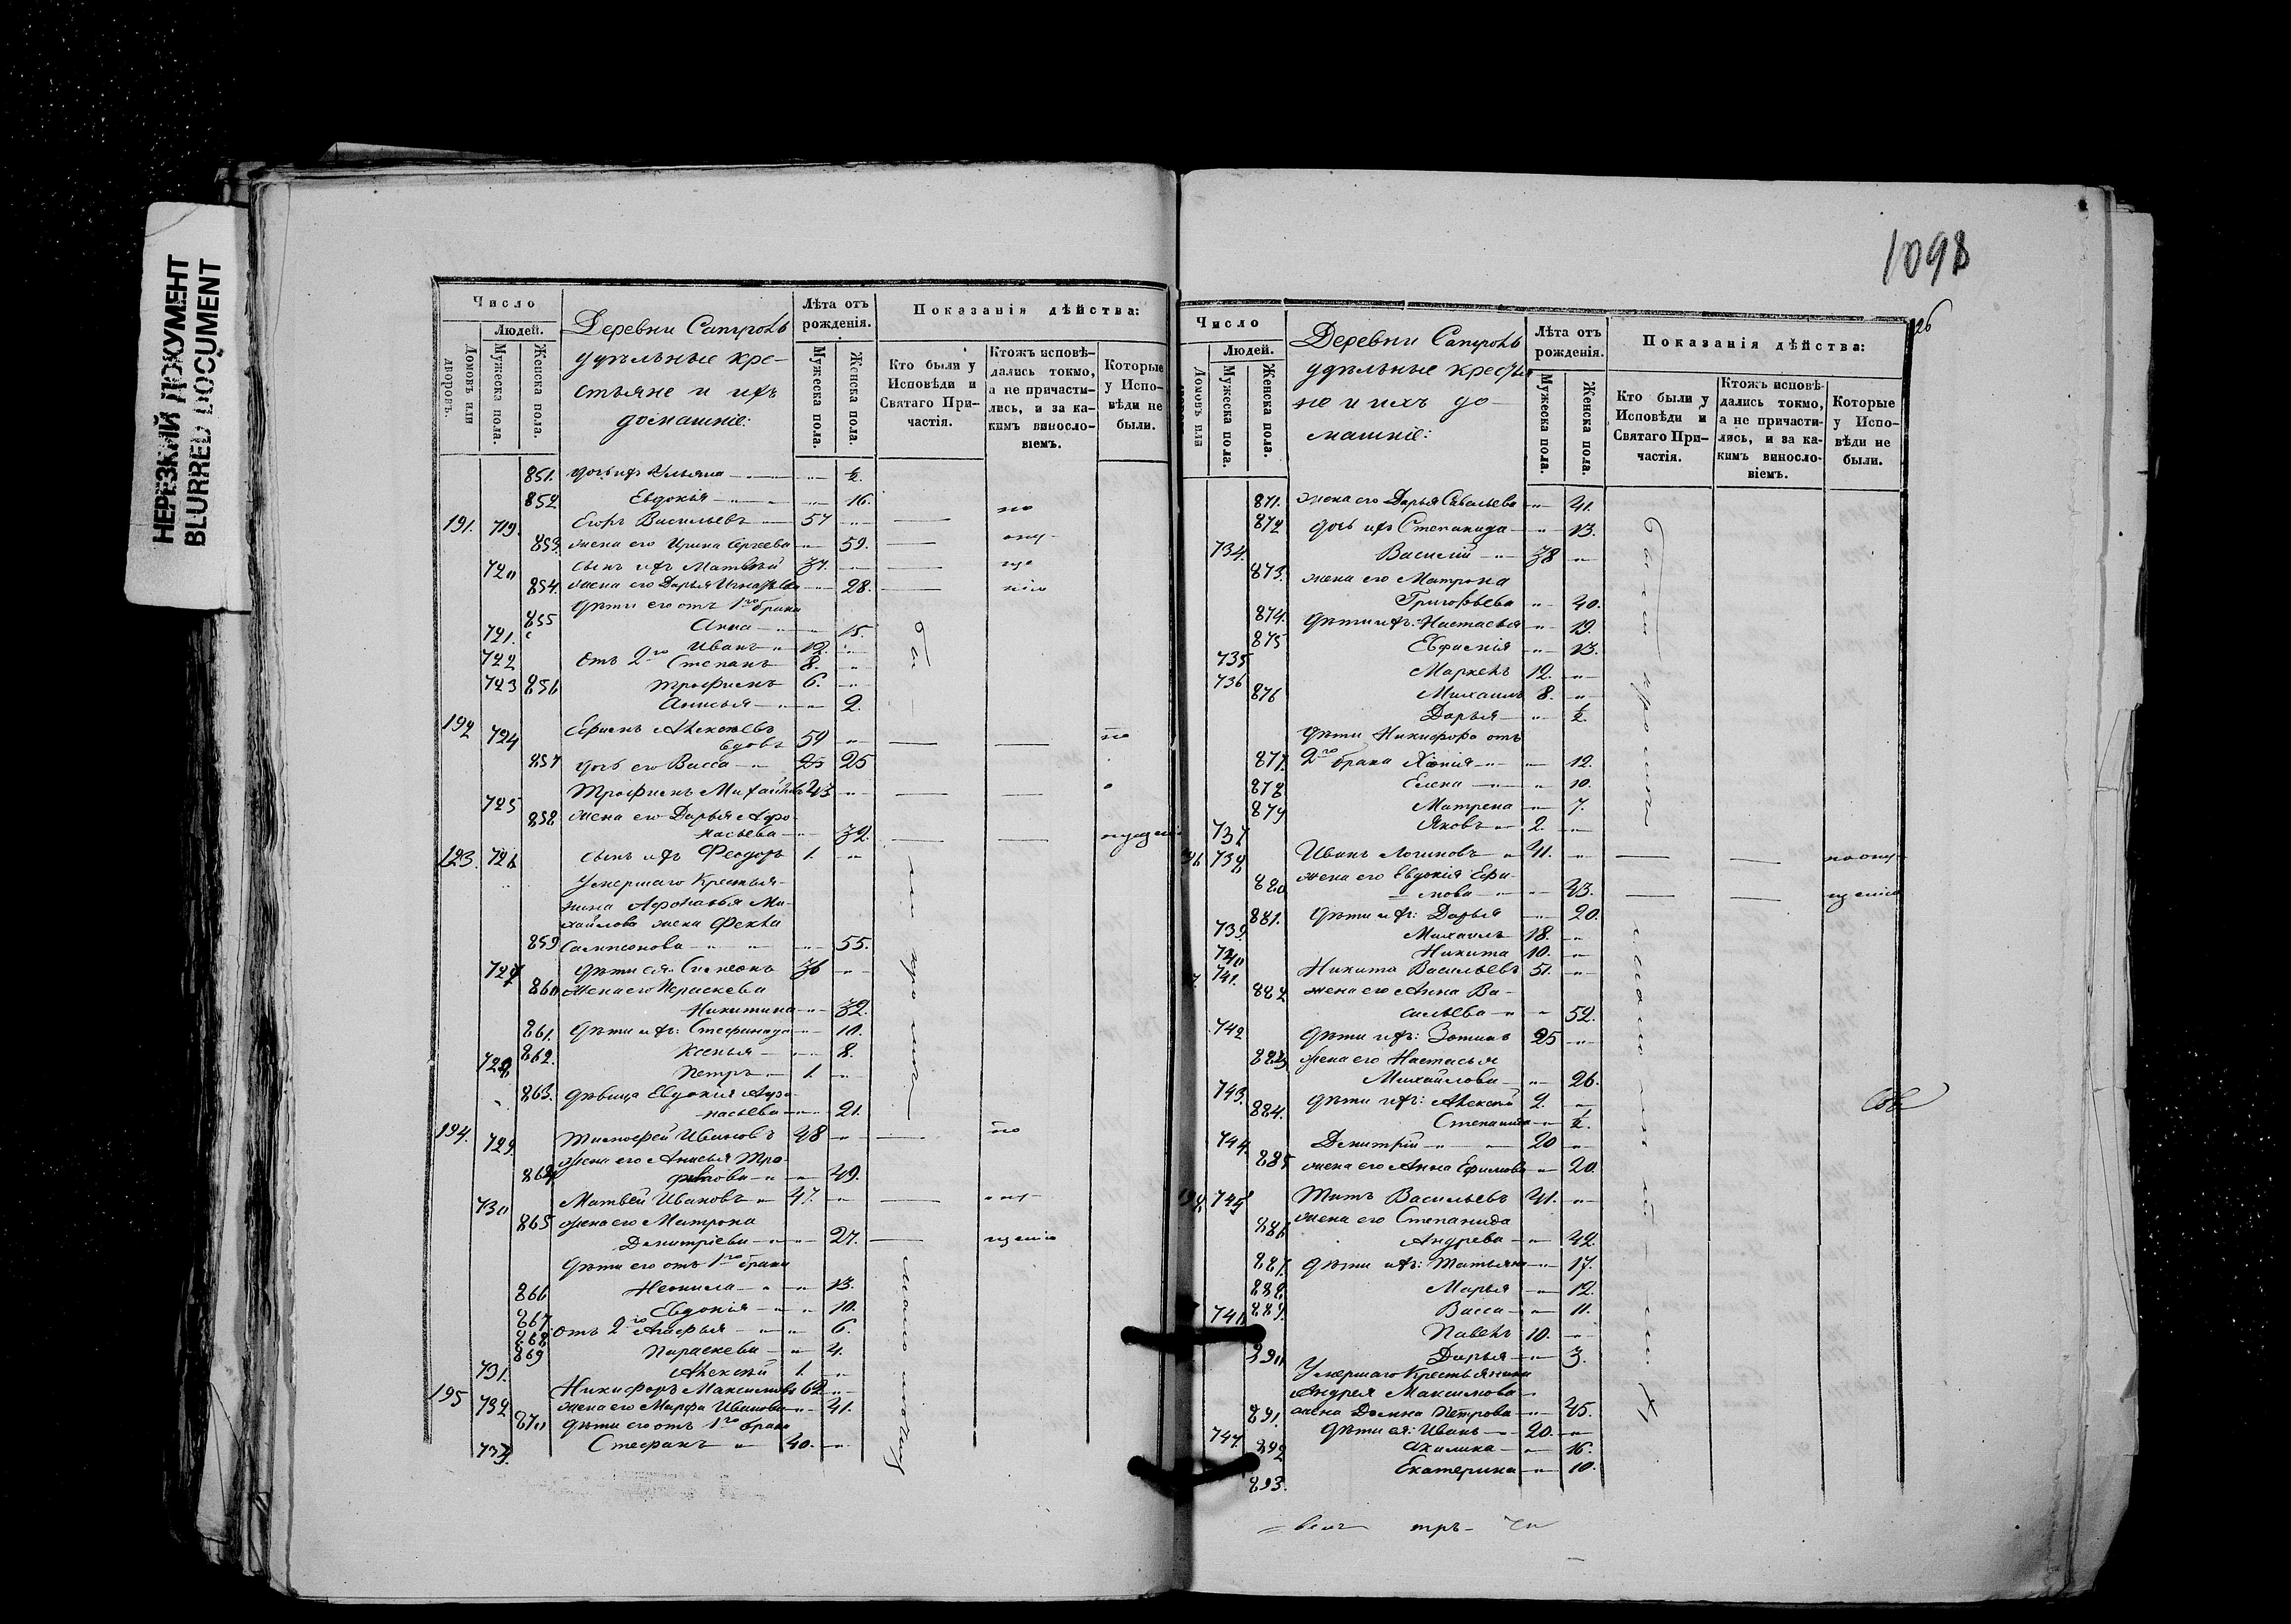 НЕРЕЗКИЙ ДОКУМЕНТ
BLURRED DOCUMENT
Число
Людей.
Домовъ или дворовъ.
Мужеска пола.
Женска пола.
Деревни
удѣльные кре-
стьяне и ихъ
домашніе:
Лѣта отъ рожденія.
Мужеска пола.
Женска пола.
Показанія дѣйства:
Кто были у Исповѣди и Святаго При-частія.
Ктожъ исповѣ-дались токмо, а не причасти-лись, и за ка-кимъ винослo-віемъ.
Которые у Испо-вѣди не были.
851. дочь ихъ Ульяна ½.
852 Евдокія 16.
191. 719. Егоръ Васильевъ 57
853. жена его Ирина Сергѣева 59.
720 сынъ ихъ Матвѣй 37.
854. жена его Дарья 28.
дѣти его отъ 1го брака
855 Анна 15.
721. Иванъ 12.
722 отъ 2го Степанъ 8.
723 Трофимъ 6.
856 Анисья 2.
192 724 Ефимъ Алексѣевъ
вдовъ 59
857 дочь его Васса 25 25
725 Трофимъ Михайловъ 43
858 жена его Дарья Афо-
насьева 32.
193. 726 сынъ ихъ Феодоръ 1.
Умершаго Крестья-
нина Афонасья Ми-
хайлова жена Фекла
859 Сампсонова 55.
727 дѣти ея: Симеонъ 36
860 жена его Параскева
Никитина 32.
861. дѣти ихъ: Стефанида 10.
862. Ксенья 8.
728 Петръ 1.
863. дѣвица Евдокия Афо-
насьева 21.
194. 729. Тимофей Ивановъ 48
864 жена его Анисья Тро-
фимова 49.
730 Матвей Ивановъ 47.
865 жена его Матрона
Димитріева 27.
дѣти его отъ 1го брака
866 Неонила 13.
867 Евдокія 10.
868 отъ 2го Агафья 6.
869 Параскева 4.
731. Алексѣй 1.
195 732 Никифоръ Максимовъ 62
870 жена его Марфа Иванова 41.
дѣти его отъ 1го брака
733. Стефанъ 40.
1098
126
Число
Людей.
Домовъ или
Мужеска пола.
Женска пола.
Деревни
удѣльные крестья
не и ихъ до-
машніе:
Лѣта отъ рожденія.
Мужеска пола.
Женска пола.
Показанія дѣйства:
Кто были у Исповѣди и Святаго При-частія.
Ктожъ исповѣ-дались токмо, а не причасти-лись, и за ка-кимъ винослo-віемъ.
Которые у Испо-вѣди не были.
871. жена его Дарья Савельева 41.
872 дочь ихъ Степанида 13.
734. Василій 38
873. жена его Матрона
Григорьева 40.
874. дѣти ихъ: Настасья 19.
875 Евфимія 13.
735 Маркелъ 12.
736 Михаилъ 8.
876 Дарья ½.
дѣти Никифора отъ
877. 2го брака Хіонія 12.
878 Елена 10.
879 Матрена 7.
737 Яковъ 2.
738 Иванъ Логиновъ 41.
880 жена его Евдокія Ефи-
мова 43.
881. дѣти ихъ: Дарья 20.
739. Михаилъ 18.
740 Никита 10.
741. Никита Васильевъ 51.
882 жена его Анна Ва-
сильева 52.
742 дѣти ихъ: Зотикъ 25
883 жена его Настасья
Михайлова 26.
743. дѣти ихъ: Алексѣй 2.
884. Степанида ½.
744. Димитрій 20
885 жена его Анна Ефимова 20.
745 Титъ Васильевъ 41.
886 жена его Степанида
Андреева 42.
887. дѣти ихъ: Татьяна 17.
888. Марья 12.
889. Васса 11.
746 Павелъ 10.
890 Дарья 3.
Умершаго Крестьянина
Андрея Максимова
891. жена Домна Петрова 45.
747. дѣти ея: Иванъ 20.
892 Акилина 16.
893. Екатерина 10.